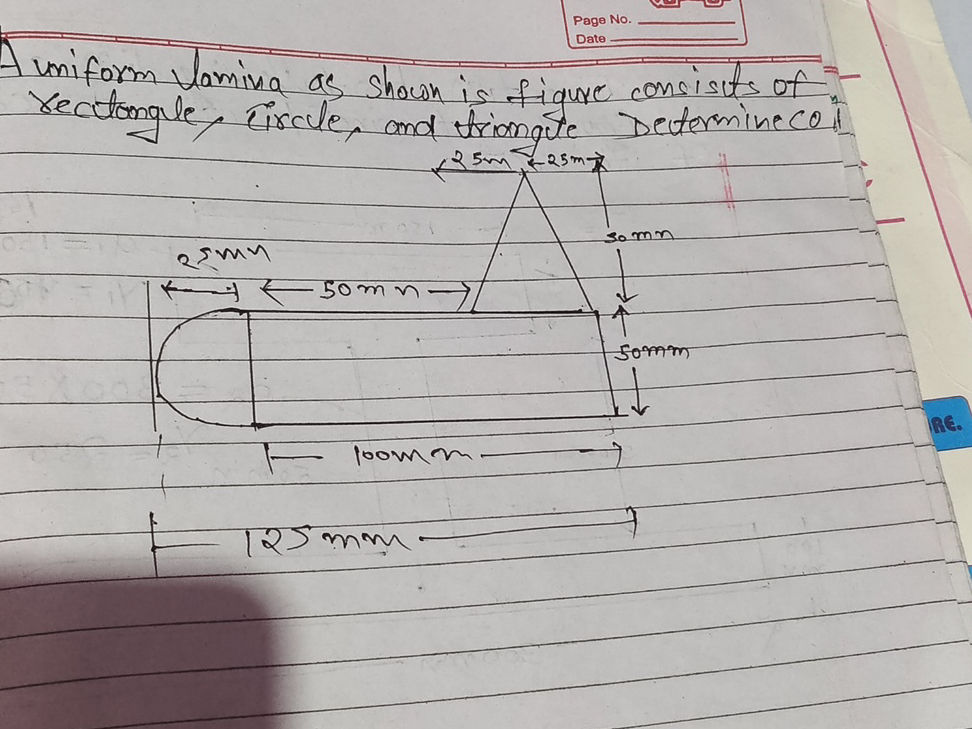 Page No.
Date
A uniform lamina as shown is figure consists of
rectangle, circle, and triangle Determine co
25m 25m
30mm
25mm
50mm
50mm
100mm
125mm
RE.